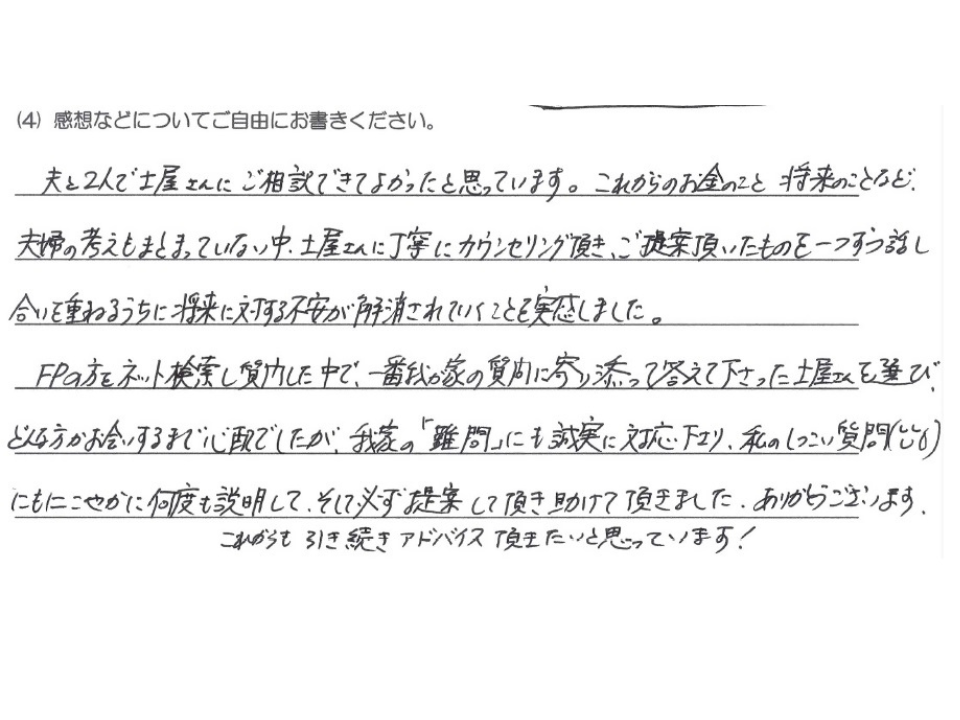 (4) 感想などについてご自由にお書きください。
夫と2人で土屋さんにご相談できてよかったと思っています。これからのお金のこと 将来のことなど、
夫婦の考えもまとまっていない中、土屋さんに丁寧にカウンセリング頂き、ご提案頂いたものを一つずつ話し
合いを重ねるうちに将来に対する不安が解消されていくことを実感しました。
FPの方をネット検索し質問した中で、一番我が家の質問に寄り添って答えて下さった土屋さんを選び、
どんな方かお会いするまで心配でしたが、我家の「難問」にも誠実に対応下さり、私のしつこい質問
にもにこやかに何度も説明して、そして必ず提案して頂き助けて頂きました。ありがとうございます。
これからも引き続きアドバイス頂きたいと思っています！